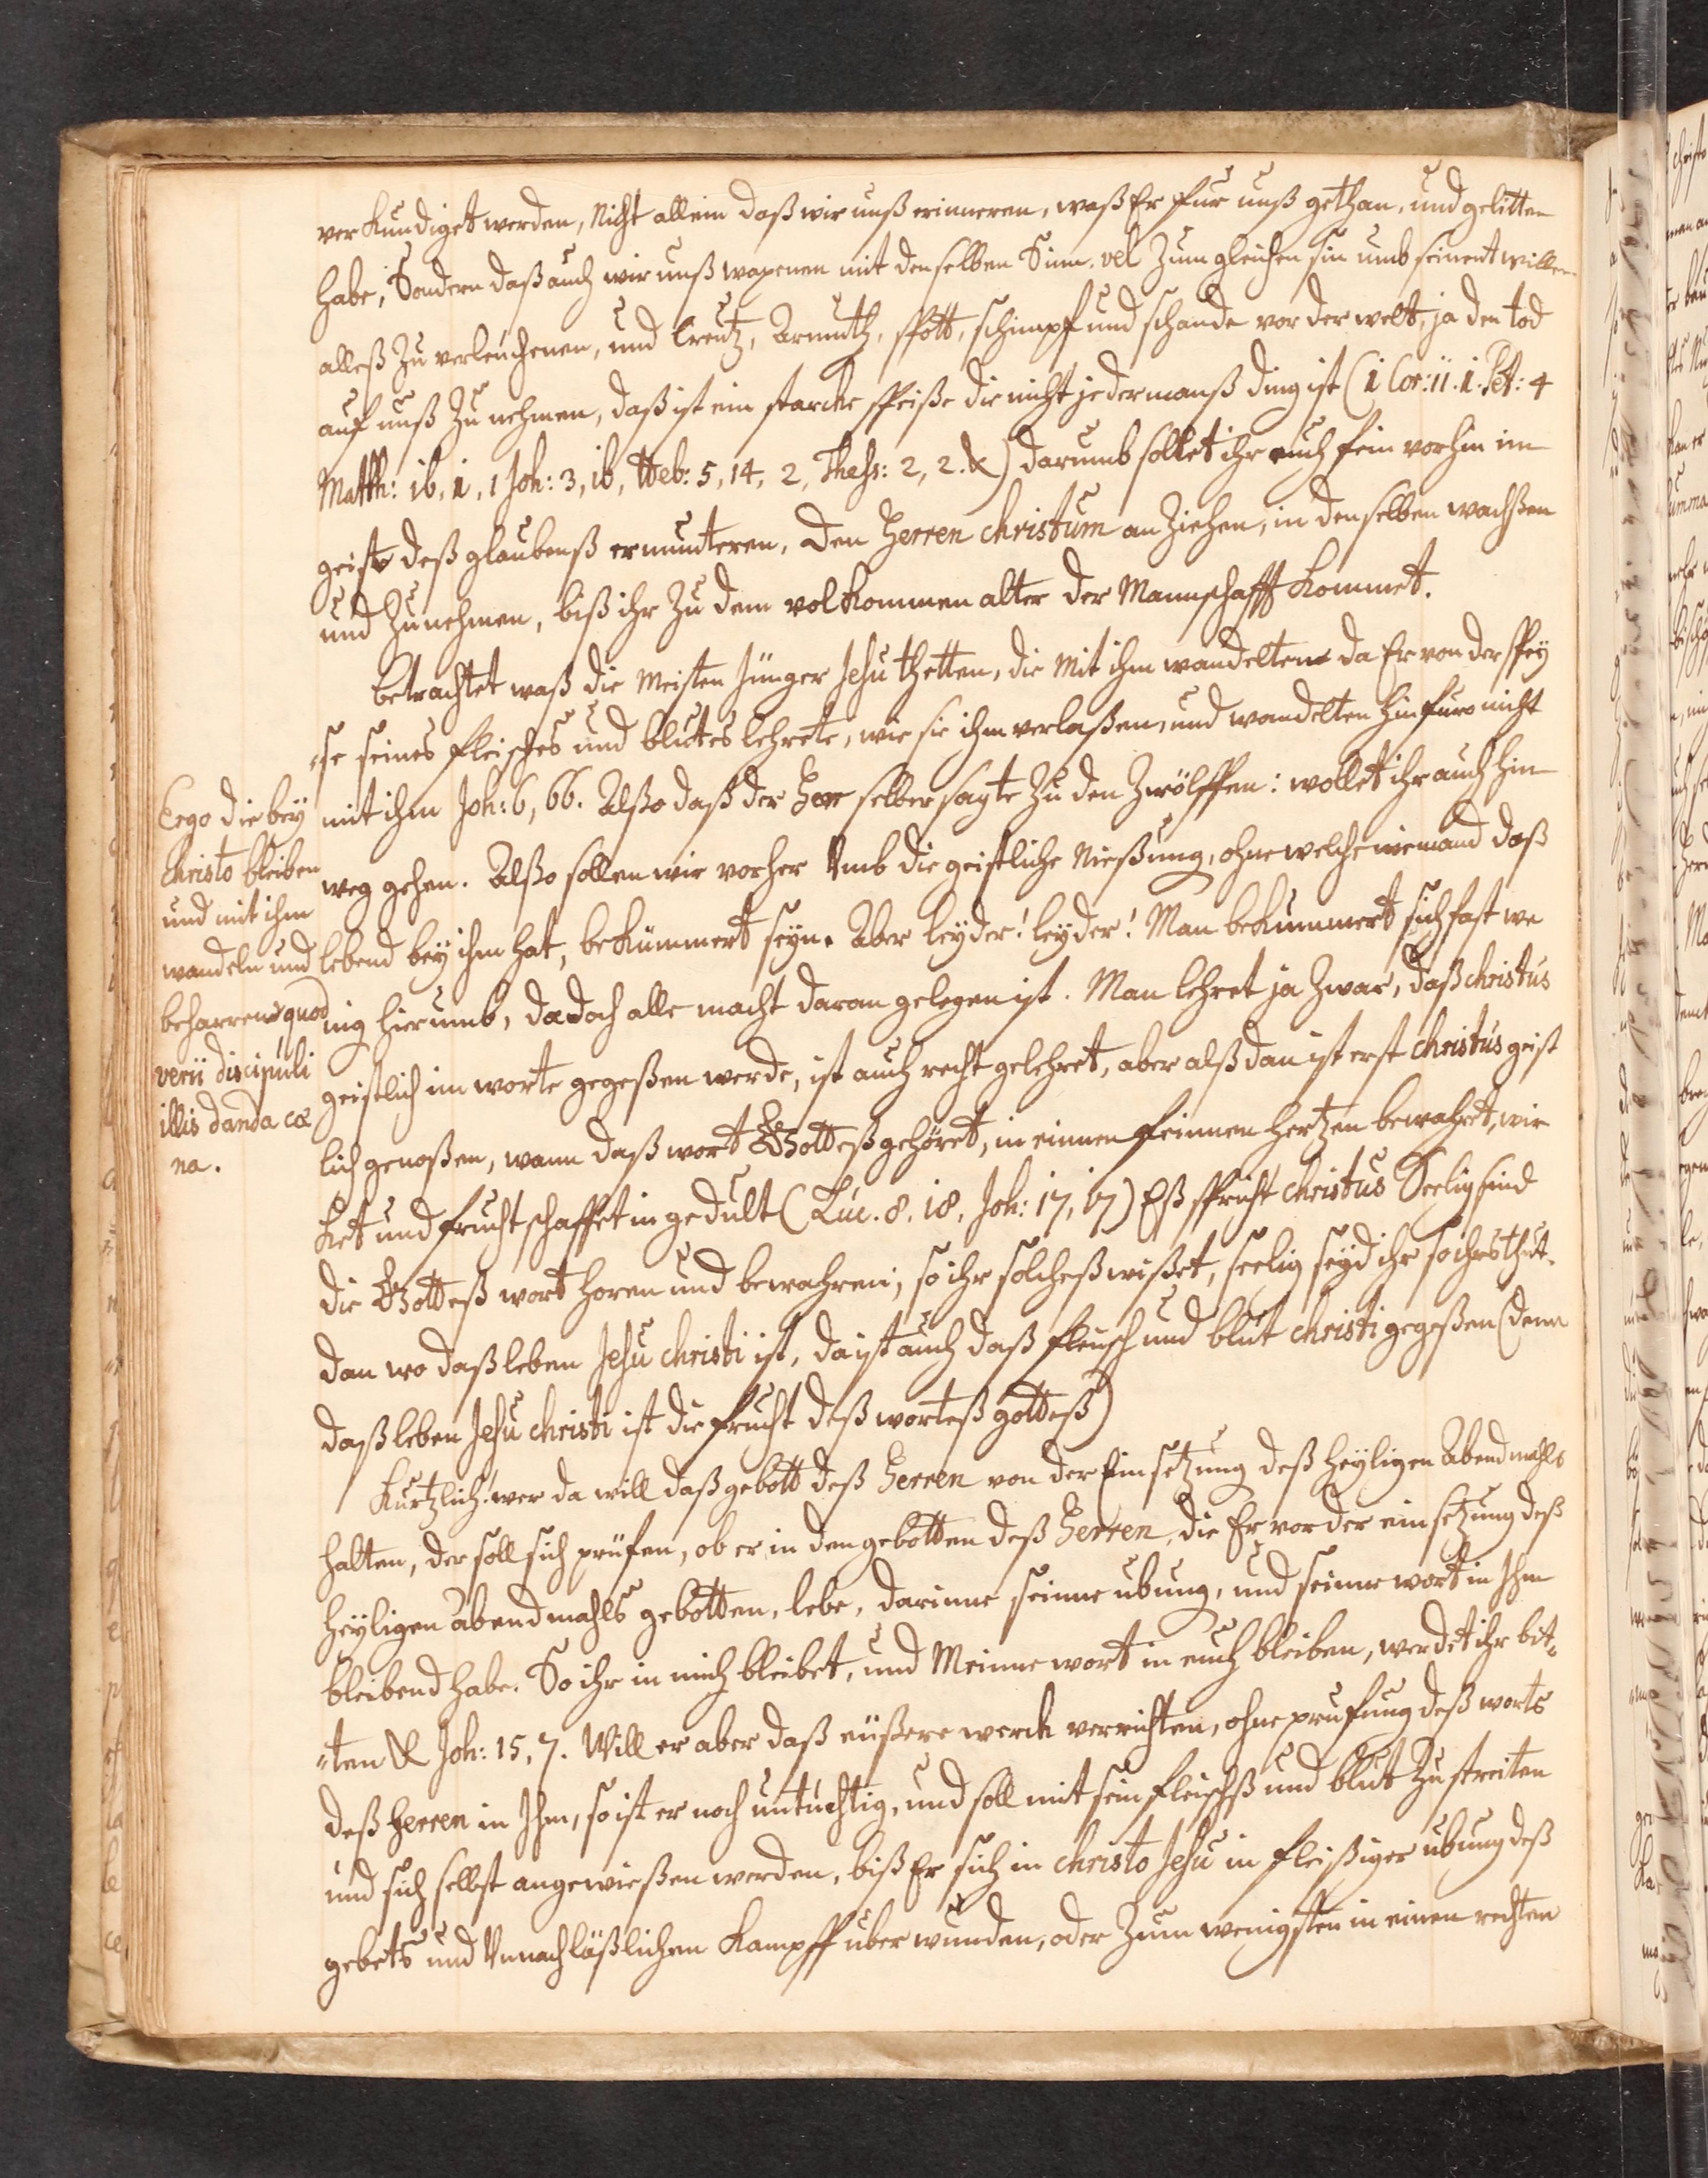 verkundiget werden, Nicht allein daß wir unß erinneren, waß Er fur unß gethan, und gelitten
habe, Sondern daß auch wir unß wapenen mit denselben Sinn. vel Zum gleichen sin umb seinent willen
alleß zu verleuchenen, und Creutz, Armuth, spott, schimpf und schande vor der welt, ja den tod
auf unß zu nehmen, daß ist ein starcke speiße die nicht jedermanß ding ist (1 Cor: 11. 1. Pet: 4
Matth: 16, 1, 1 Joh: 3, 16, Heb: 5, 14, 2, Thess: 2, 2. &) darumb sollet ihr euch fein vorhin im
geist deß glaubenß ermunteren, den Herren christum anziehen, in denselben wachßen
und zunehmen, biß ihr zu dem volkommen alter der Mannschafft kommet.
betrachtet waß die meisten Jünger Jesu thetten, die mit ihm wandelten da Er von der spey
„se seines fleisches und blutes lehrete, wie sie ihm verlaßen, und wandelten hinfuro nicht
mit ihm Joh: 6, 66. Alßo daß der Herr selber sagte zu den Zwölffen: wollet ihr auch hin
weg gehen. Alßo sollen wir vorher Umb die geistliche Nießung, ohne welche niemand daß
lebend bey ihm hat, bekümmert seyn. Aber leyder! leyder! Man bekummert sich fast we
nig hierumb, da doch alle macht daran gelegen ist. Man lehret ja zwar, daß christus
geistlich im worte gegeßen werde, ist auch recht gelehret, aber alß dan ist erst christus geist
lich genoßen, wann daß wort Gotteß gehöret, in einnen feinnen hertzen bewahret, wir
ket und frucht schaffet in gedult (Luc. 8. 18, Joh: 17, 17) Eß spricht christus Seelig sind
die Gotteß wort horen und bewahren, so ihr solcheß wißet, seelig seyd ihr so ihrs thut.
dan wo daß leben Jesu christi ist, da ist auch daß fleisch und blut christi gegeßen (denn
daß leben Jesu christi ist die frucht deß worteß gotteß)
Kurtzlich: wer da will daß gebott deß Herren von der Einsetzung deß heyligen Abendmahls
halten, der soll sich prüfen, ob er in den gebotten deß Herren, die Er vor der einsetzung deß
heyligen abendmahls gebotten, lebe, darinne seinne ubung, und seinne wort in Ihm
bleibend habe. So ihr in mich bleibet, und Meinne wort in euch bleiben, werdet ihr bit„
„ten & Joh: 15, 7. Will er aber daß eüßere werck verrichten, ohne prufung deß worts
deß Herren in Ihm, so ist er noch untuchtig, und soll mit sein fleischß und blut zu streiten
und sich selbst angewießen werden, biß Er sich in christo Jesu in fleißiger ubung deß
gebets und Unnachläßlichen Kampff uberwunden, oder zum wenigsten in einen rechten
Ergo die bey
christo bleiben
und mit ihm
wandeln und
beharren quod
verii discipuli
illis danda cœ
na.